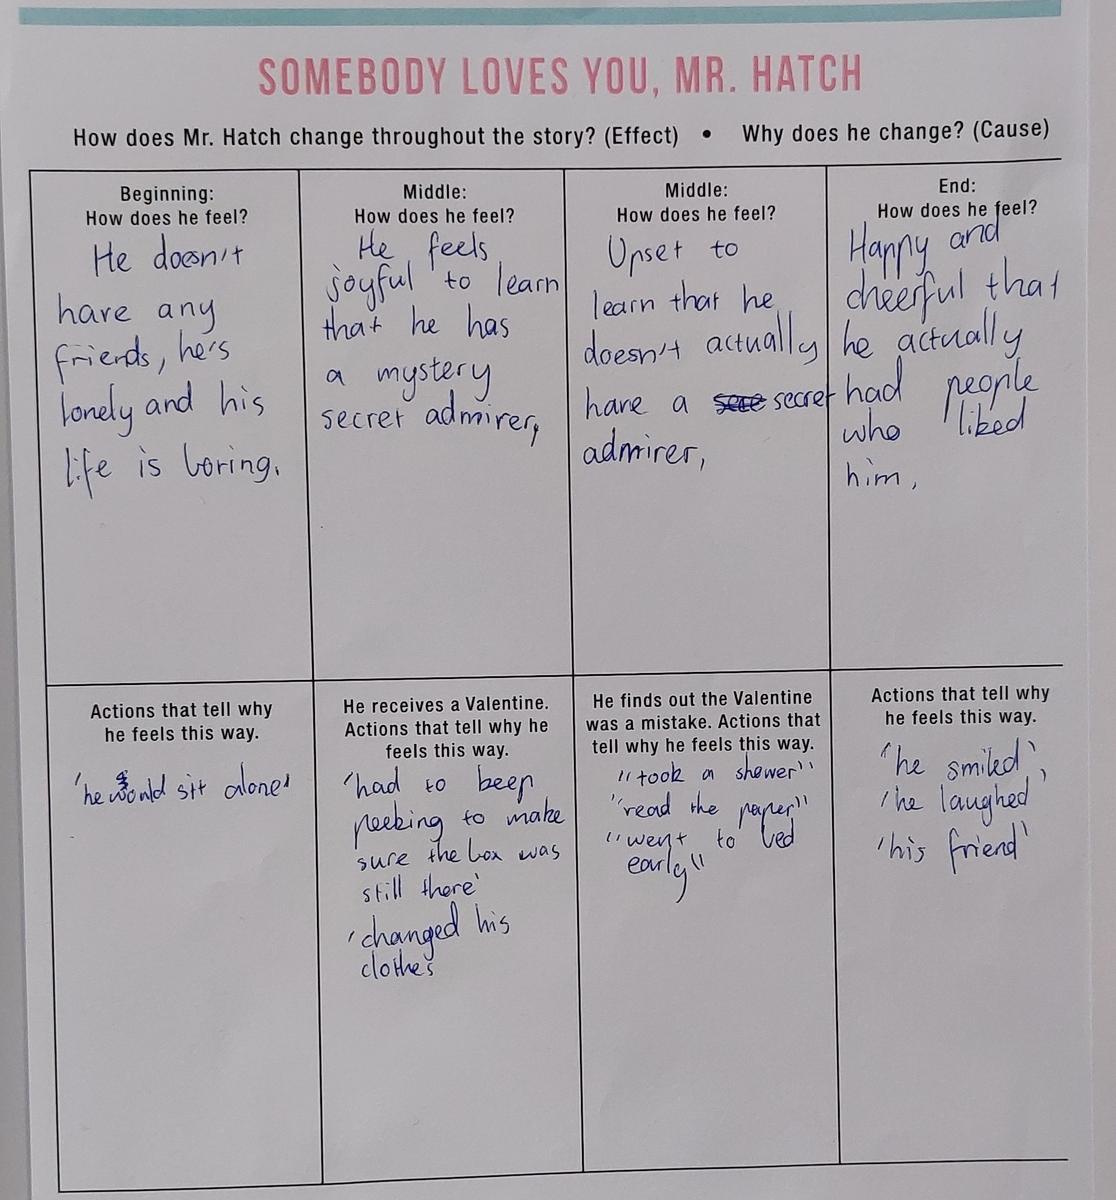 SOMEBODY LOVES YOU, MR. HATCH
How does Mr. Hatch change throughout the story? (Effect) • Why does he change? (Cause)
Beginning:
How does he feel?
He doesn't
have any
friends, he's
lonely and his
life is boring.
Middle:
How does he feel?
He feels
joyful to learn
that he has
a mystery
secret admirer,
Middle:
How does he feel?
Upset to
learn that he
doesn't actually
have a secret
admirer,
End:
How does he feel?
Happy and
cheerful that
he actually
had people
who liked
him,
Actions that tell why
he feels this way.
'he would sit alone'
He receives a Valentine.
Actions that tell why he
feels this way.
'had to been
peeking to make
sure the box was
still there'
'changed his
clothes
He finds out the Valentine
was a mistake. Actions that
tell why he feels this way.
"took a shower"
"read the paper"
"went to bed
early"
Actions that tell why
he feels this way.
'he smiled',
'he laughed'
'his friend'